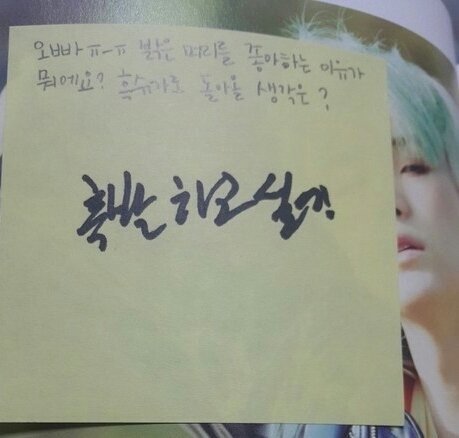 오빠 ㅠㅡㅠ 밝은 머리를 좋아하는 이유가
뭐에요? 흑슈가로 돌아올 생각은?
흑발 하고 싶다.